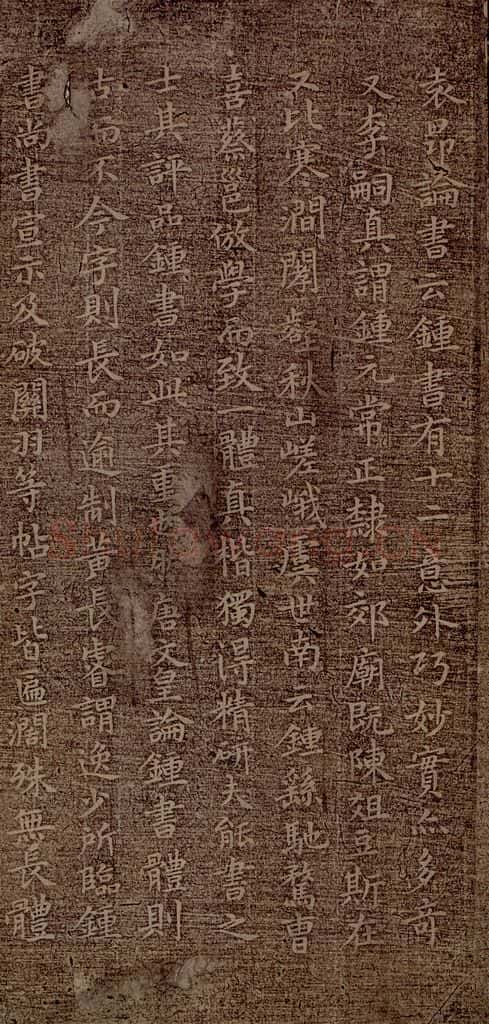 袁昂論書云鍾書有十二意外巧妙實亦多奇
又李嗣真謂鍾元常正隸如郊廟既陳俎豆斯在
又比寒澗閴壑秋山嵯峨虞世南云鍾繇馳騖曹
喜蔡邕倣學而致一體真楷獨得精研夫能書之
士其評品鍾書如此其重也唐文皇論鍾書體則
古而不今字則長而逾制黃長睿謂逸少所臨鍾
書尚書宣示及破關羽等帖字皆匾濶殊無長體